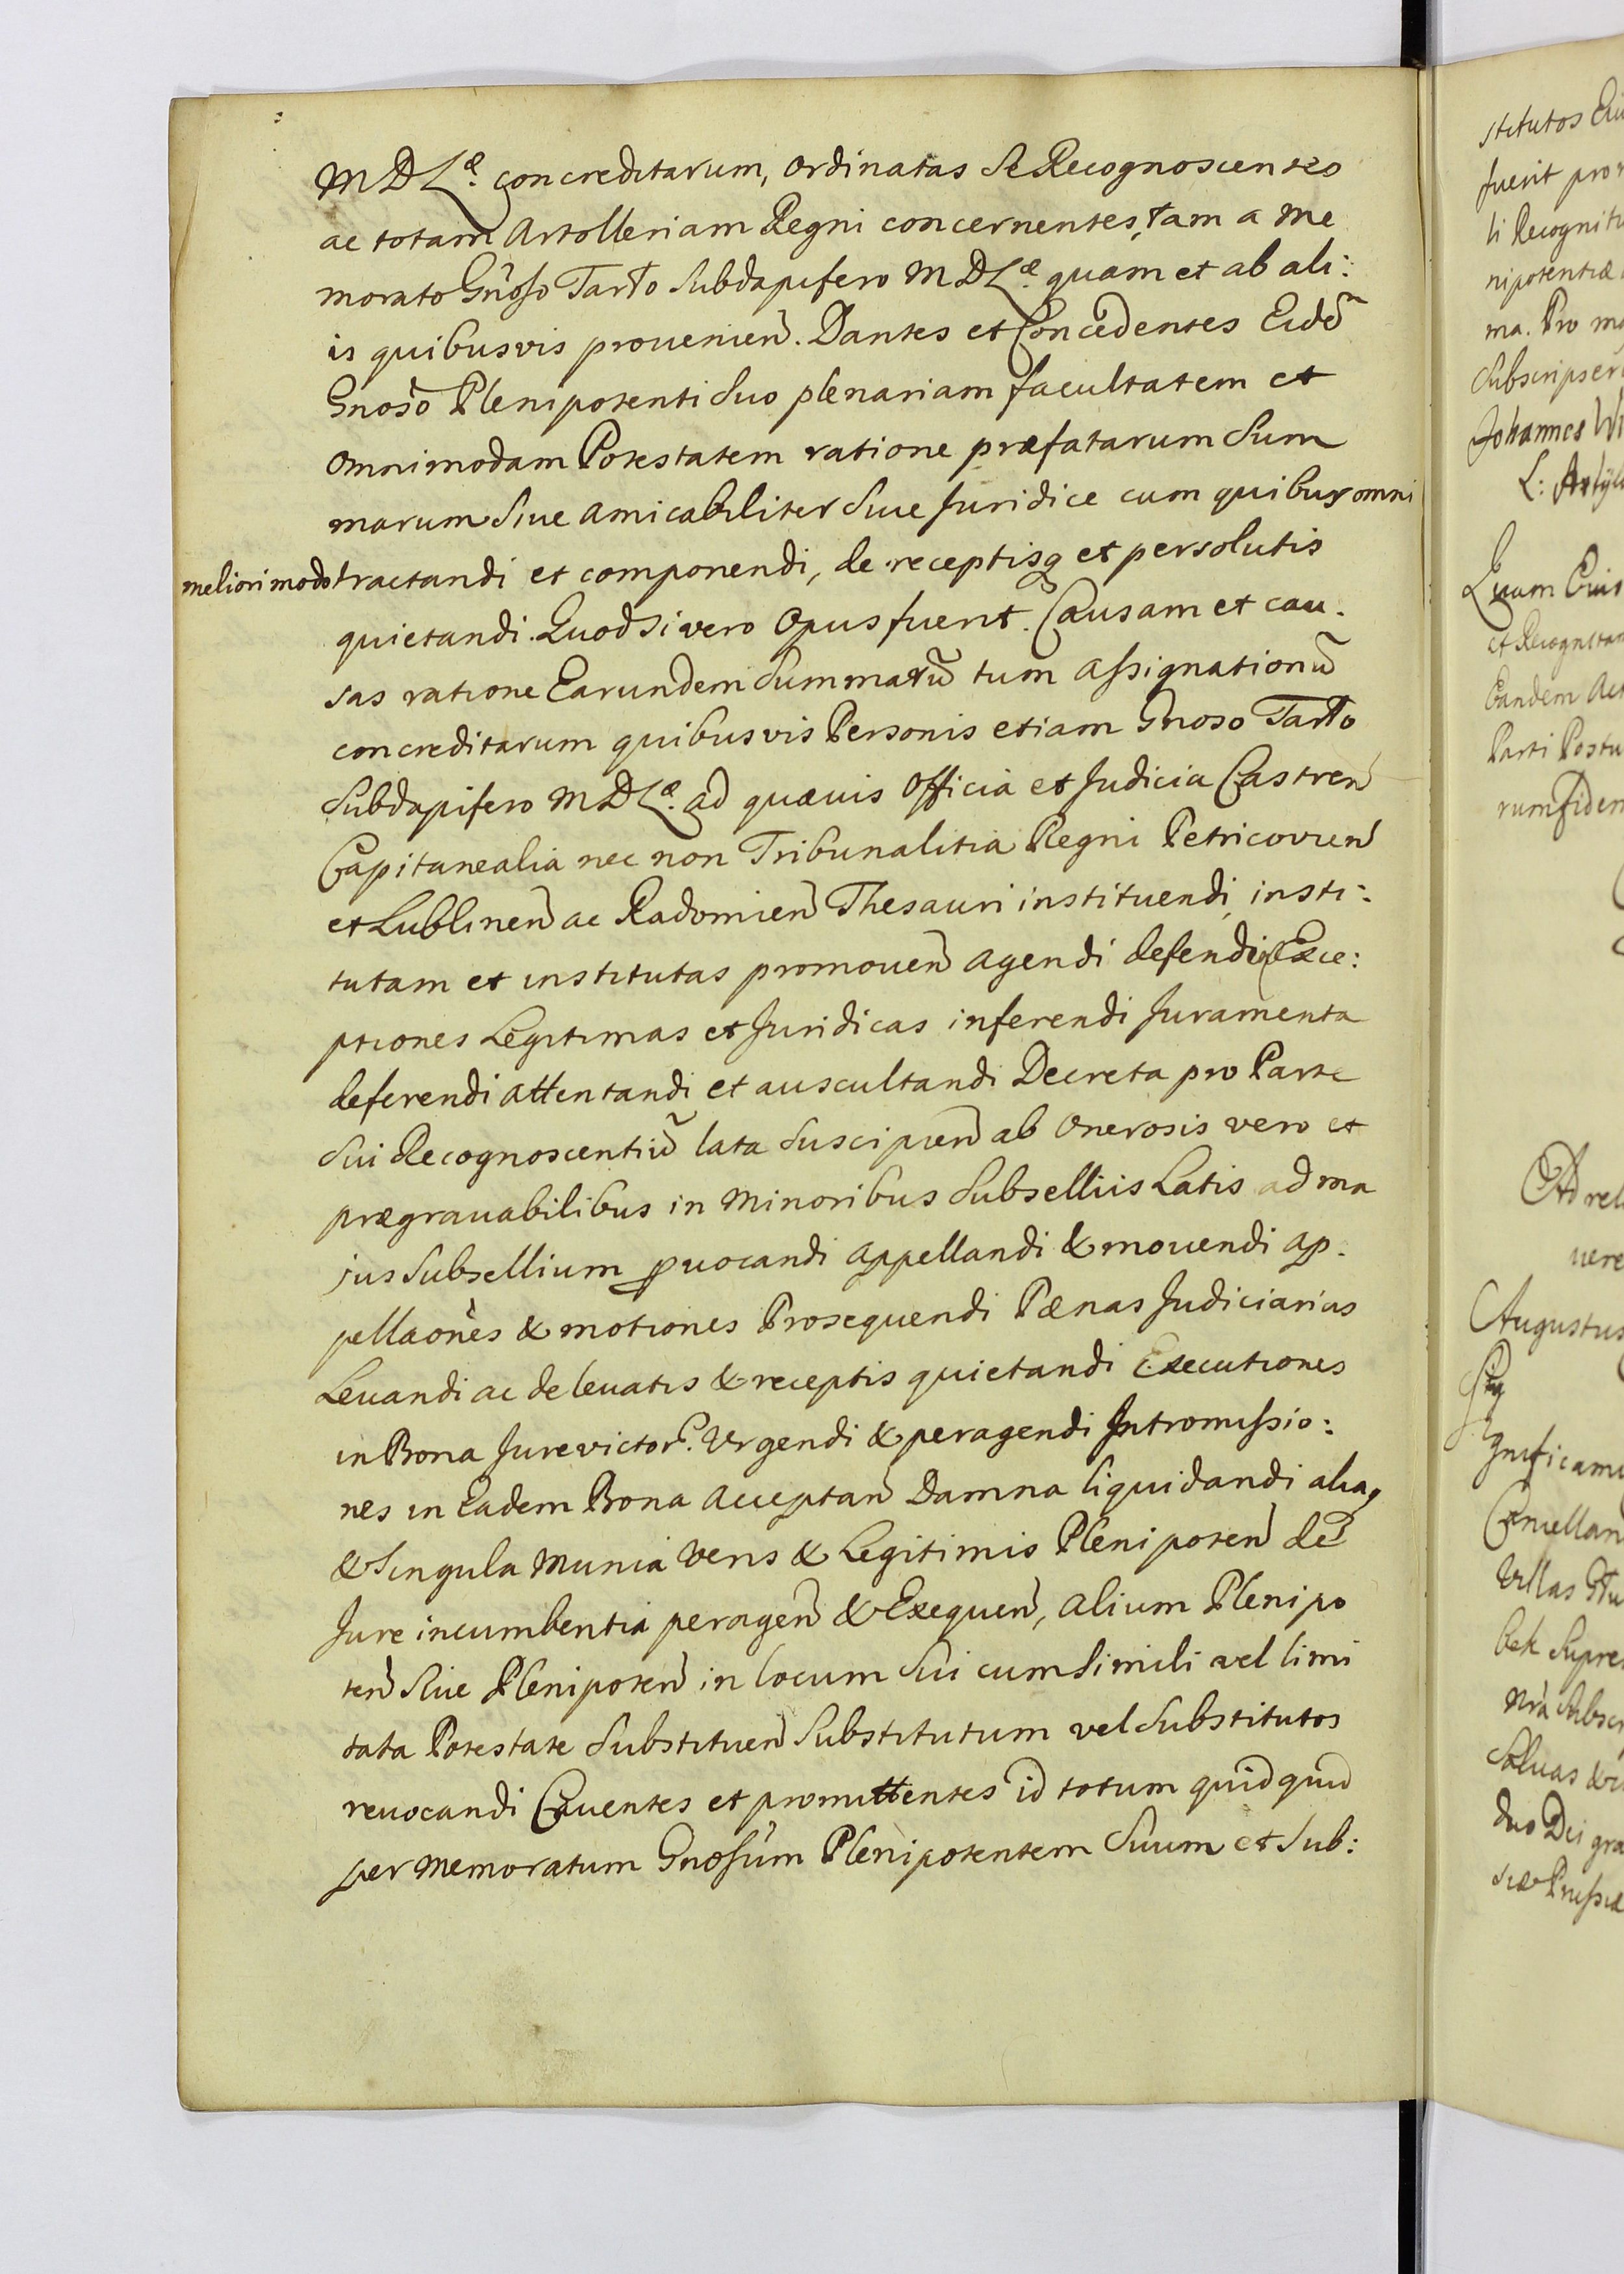 M D Læ. concreditarum, ordinatas se Recognoscentes
ac totam Artolleriam Regni concernentes, tam a me
morato Gnoso Tarło Subdapifero M D Læ. quam et ab ali:
is quibusvis provenien. Dantes et Concedentes Eidē
Gnoso Plenipotenti suo plenariam facultatem et
omnimodam Potestatem ratione præfatarum Sum
marum siue amicabiliter siue Juridice cum quibusvis omni
meliori modo tractandi et componendi, de receptisq et persolutis
quietandi. Quodsi vero opus fuerit. Causam et cau.
sas ratione Earundem Summarū tum assignationū
concreditarum quibusvis Personis etiam Gnoso Tarło
Subdapifero M D Læ. ad quævis Officia et Judicia Castren
Capitanealia nec non Tribunalitia Regni Petricovien
et Lublinen ac Radomien Thesauri instituendi, insti:
tutam et institutas promouen agendi defendi Exce:
ptiones Legitimas et Juridicas inferendi Juramenta
deferendi attentandi et auscultandi Decreta pro Parte
sui Recognoscentiū lata suscipien ab onerosis vero et
prægrauabilibus in minoribus subselliis Latis ad ma
jus subsellium prouocandi appellandi & mouendi ap.
pellaones & motiones Prosequendi Pœnas Judiciarias
Levandi ac de levatis & receptis quietandi Executiones
in Bona Jurevictor. Vrgendi & peragendi Intromissio:
nes in Eadem Bona acceptan Damna liquidandi aliaq
& singula munia veris & Legitimis Plenipoten de
Jure incumbentia peragen & Exequen, alium Plenipo
ten siue Plenipoten in locum sui cum simili vel limi
tata Potestate substituen substitutum vel substitutos
revocandi Cauentes et promittentes id totum quidquid
per memoratum Gnosum Plenipotentem suum et sub:
stitutos
fuerit
li Recognit
nipotentiæ
ma. Pro
Subscripser
Johannes
L:
Quam
et Recognitam
Eandem
Parti Postu
rum fidem
Ad rel
Augustus
Sig
gnificamus
Villas
nra subscr
Saluas
Dei gra
Prussiæ